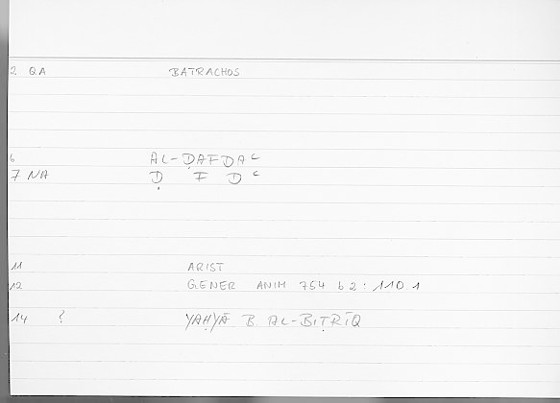 2 QA BATRACHOS
6 AL-ḌAFDAᶜ
7 NA Ḍ F D ᶜ
11 ARIST
12 GENER ANIM 754 b 2 : 110.1
14 ? YAḤYĀ B. AL-BIṬRĪQ